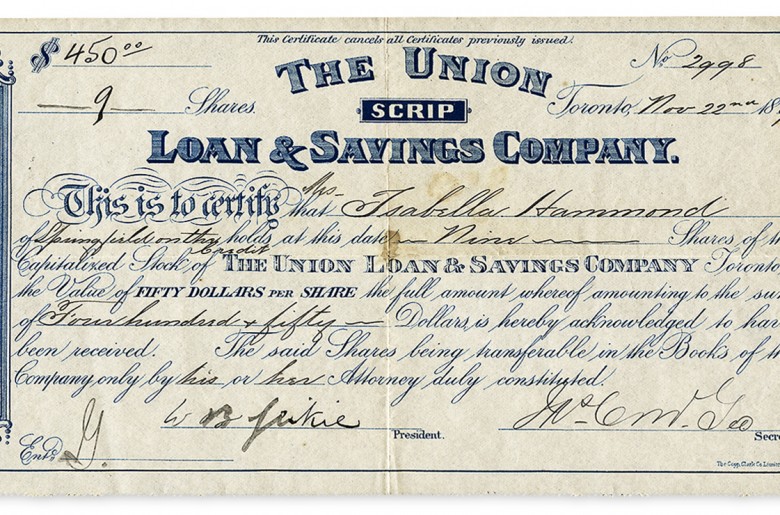 This Certificate cancels all Certificates previously issued.
$ 450 00
No 2998
THE UNION
9 Shares.
SCRIP
Toronto, Nov 22nd 18
LOAN & SAVINGS COMPANY.
This is to certify that Mrs Isabella Hammond
of Springfield on the Credit holds at this date Nine Shares of th
Capitalized Stock of THE UNION LOAN & SAVINGS COMPANY Toronto
the Value of FIFTY DOLLARS PER SHARE the full amount whereof amounting to the su
of Four hundred & fifty Dollars, is hereby acknowledged to hav
been received. The said Shares being transferable in the Books of th
Company only by his or her Attorney duly constituted.
W B Jeikie
President.
Secre
Entd. G.
The Copp, Clark Co. Limite